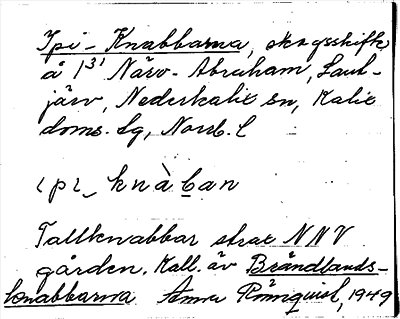 Ipi-Knabbarna, skogsskifte
å 1³¹ Närv-Abraham, Laut-
järv, Nederkalix sn, Kalix
doms. lg, Norrb. l
ɩpɩ- knàḇan
Tallknabbar strax NNV
gården. Kall. äv Brändlands-
knabbarna. Anna Rönnquist, 1949